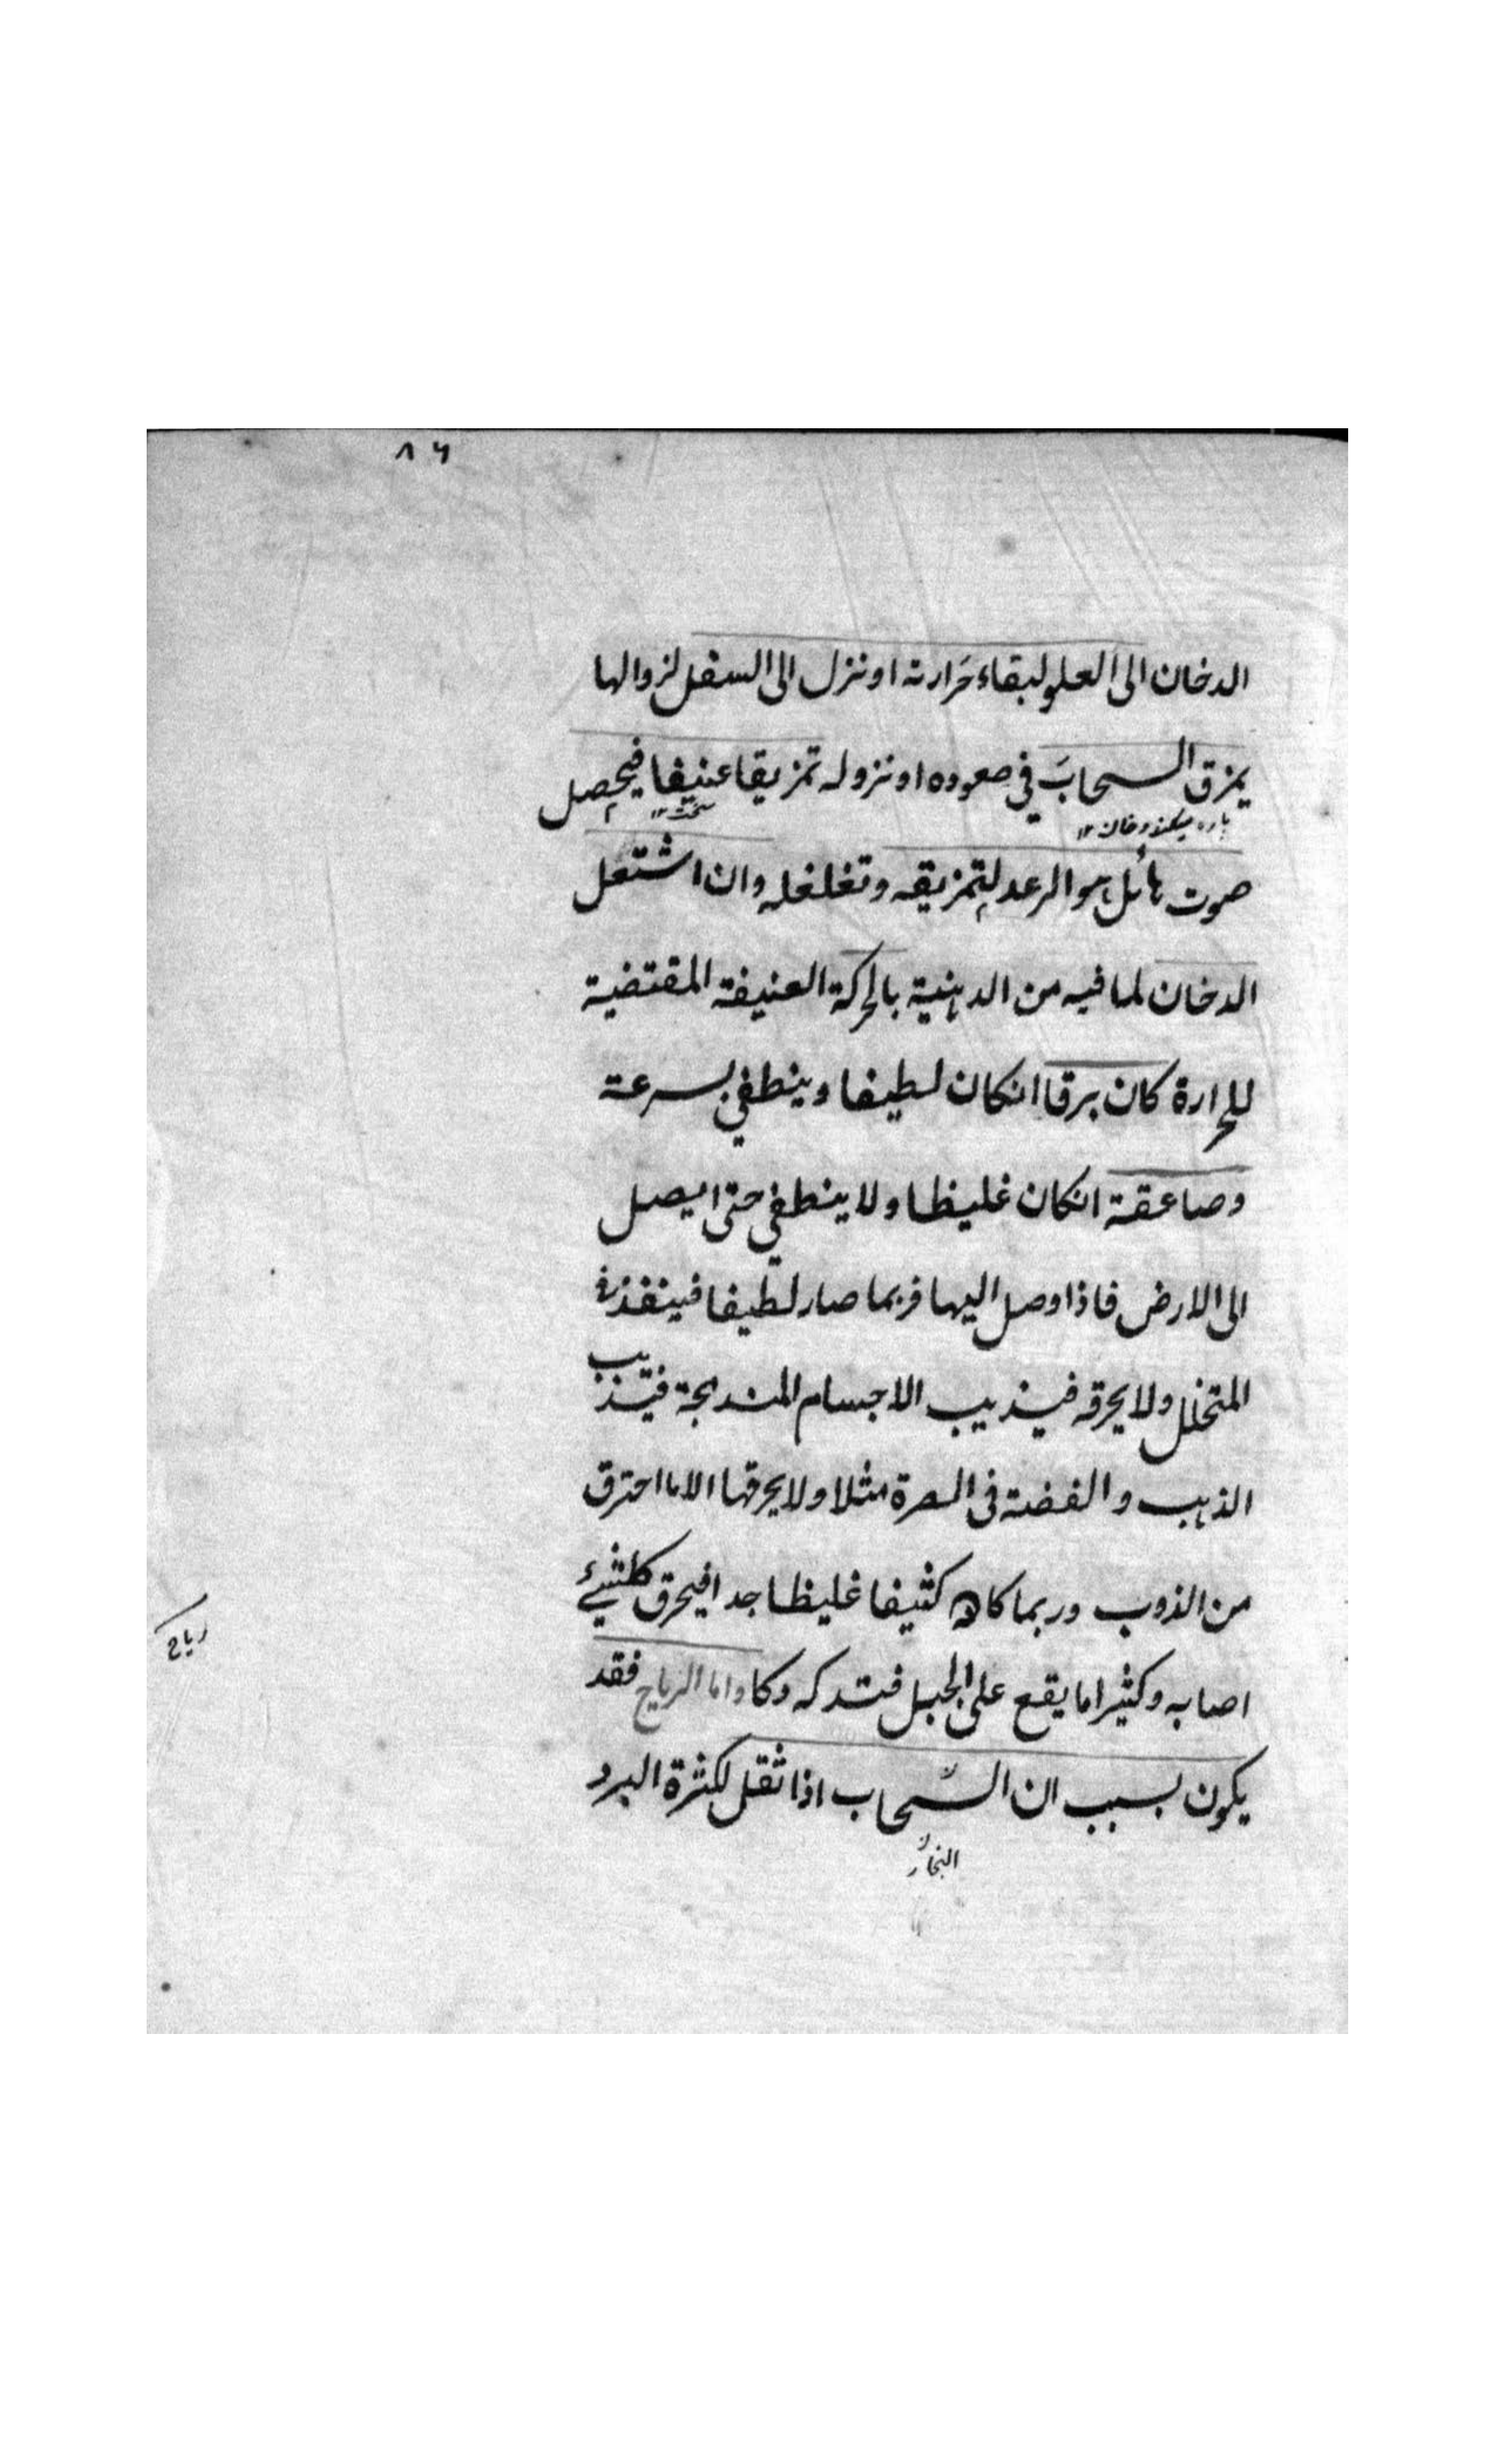 ٨٦
الدخان الى العلو لبقاء حَرارته او نزل الى السفل لزوالها
يمزق السحابَ في صعوده او نزوله تمزيقا عنيفا فيحصل
پاره ميكند دخان ١٢
سخت ١٢
صوت هائل هو الرعد لتمزيقه وتغلغله وان اشتعل
الدخان لما فيه من الدهنية بالحركة العنيفة المقتضية
للحرارة كان برقا انكان لطيفا وينطفي بسرعة
وصاعقة انكان غليظا ولا ينطفي حتى يصل
الى الارض فاذا وصل اليها فربما صار لطيفا فينفذ في
المتخلل ولا يحرقه فيذيب الاجسام المندمجة فيذيب
الذهب والفضة في الصرة مثلا ولا يحرقها الا ما احترق
من الذوب وربما كان كثيفا غليظا جدا فيحرق كلشيئ
اصابه وكثيرا ما يقع على الجبل فتدكه دكا واما الرياح فقد
رياح
يكون بسبب ان السّحاب اذا ثقل لكثرة البرد
البخار